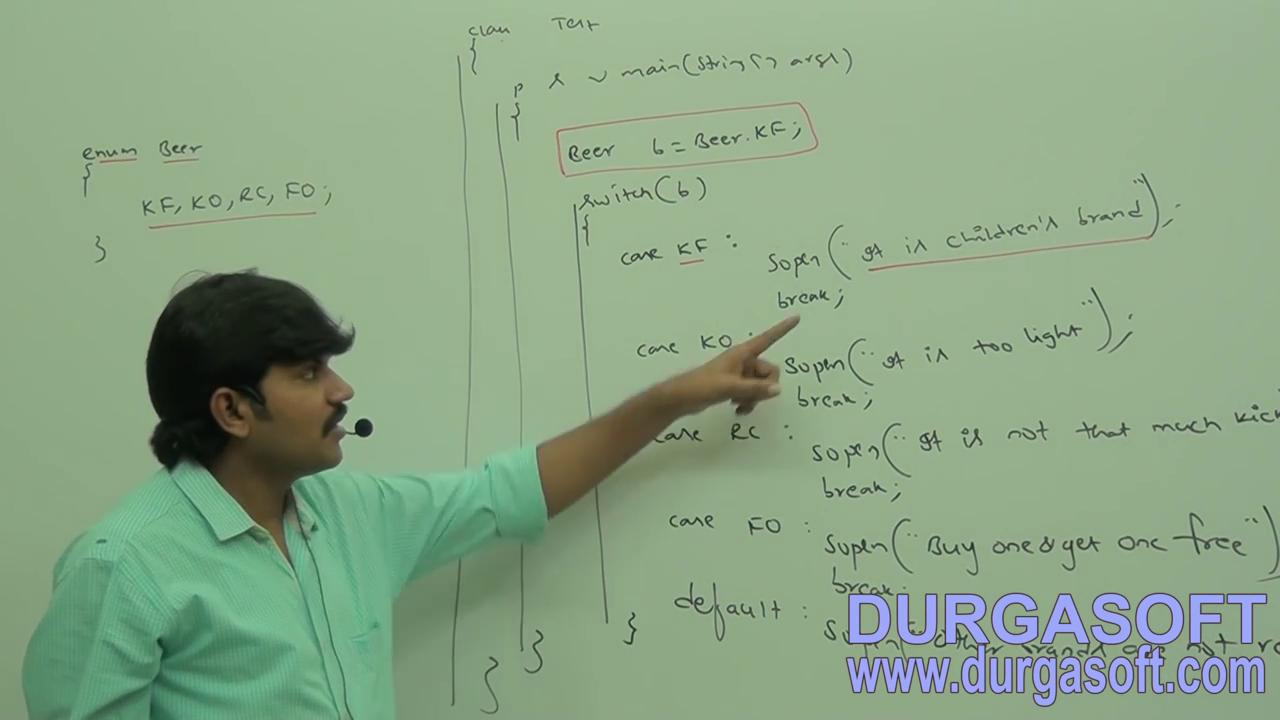 enum Beer
{
KF, KO, RC, FO;
}
class Test
{
p s v main(String[] args)
{
Beer b = Beer.KF;
switch(b)
{
case KF : Sopln("It is children's brand");
break;
case KO : Sopln("It is too light");
break;
case RC : Sopln("It is not that much kick
break;
case FO : Sopln("Buy one & get one free")
break;
default : Sopln("other brands are not
}
}
}
DURGASOFT
www.durgasoft.com